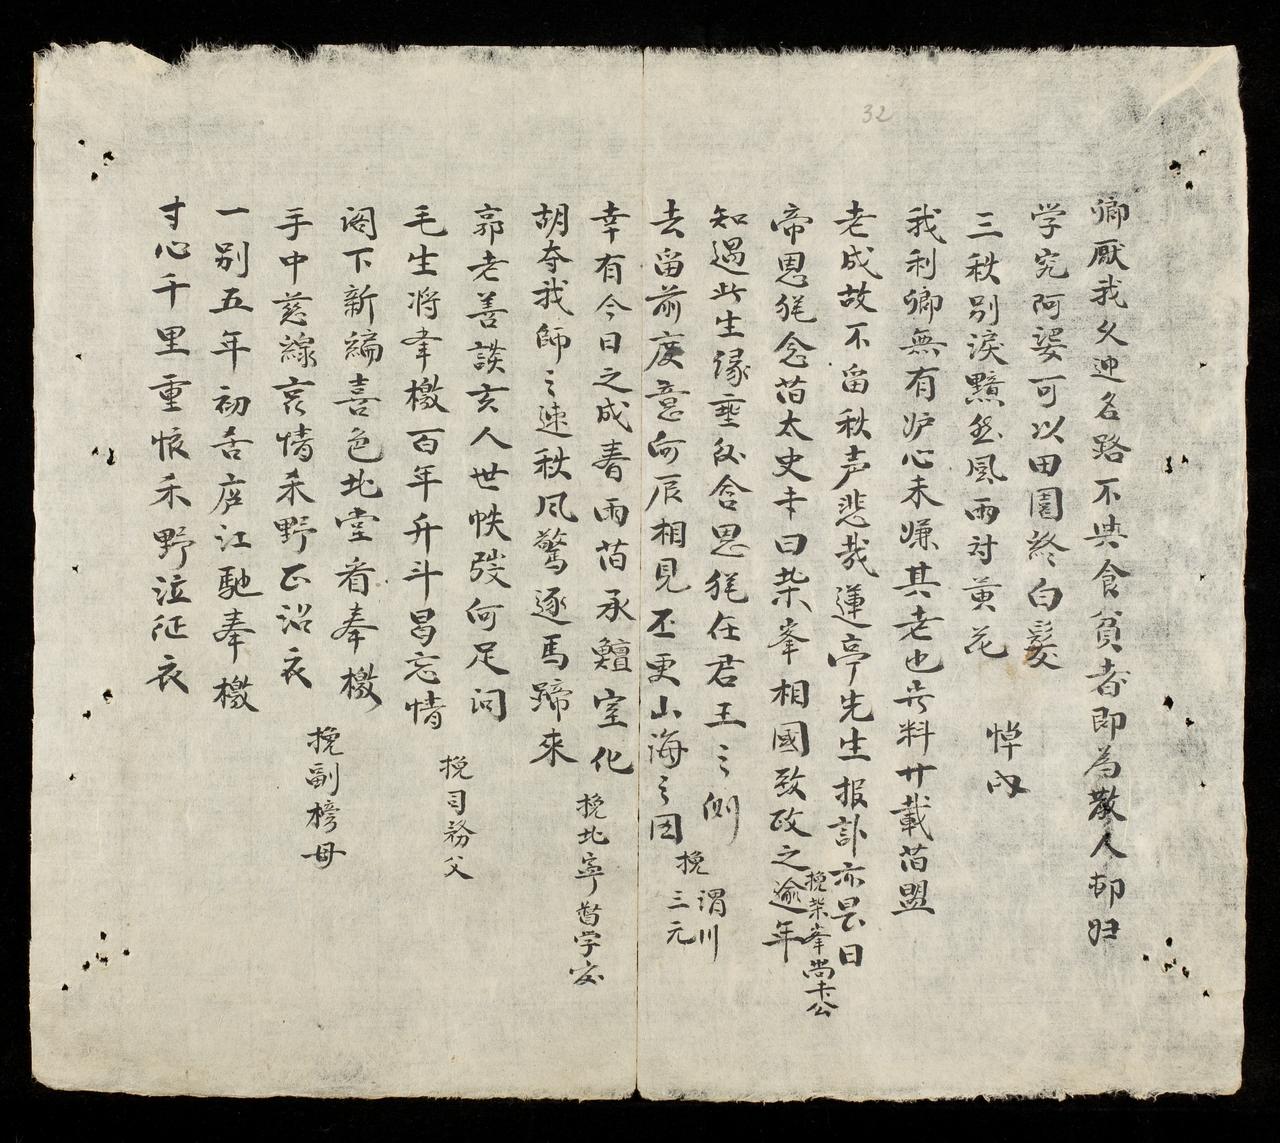 32
卿厭我久迎名路不與食貧者即為散人邨归
学究阿婆可以田園終白髪
三秋别淚黯然風雨对黄花
悼内
我利卿無有妒心未嫌其老也 料廿載旧盟
老成故不留秋声悲哉蓮亭先生报訃亦昃日
帝恩犹念旧太史 曰柴峯相國致政之逾年
挽柴峯尚 公
知遇此生缘 含恩犹在君王之側
去留前度意何辰相見丕更山海之因
挽渭川三元
幸有今日之成春雨旧承鱣室化
胡夺我師之速秋風驚逐馬蹄來
挽北寧督学安
郭老善談玄人世帙發何足问
毛生将奉檄百年升斗曷忘情
挽司务父
阁下新编喜色北堂看奉檄
手中慈線哀情禾野正沾衣
挽副榜母
一别五年初 江馳奉檄
寸心千里重悵禾野泣征衣